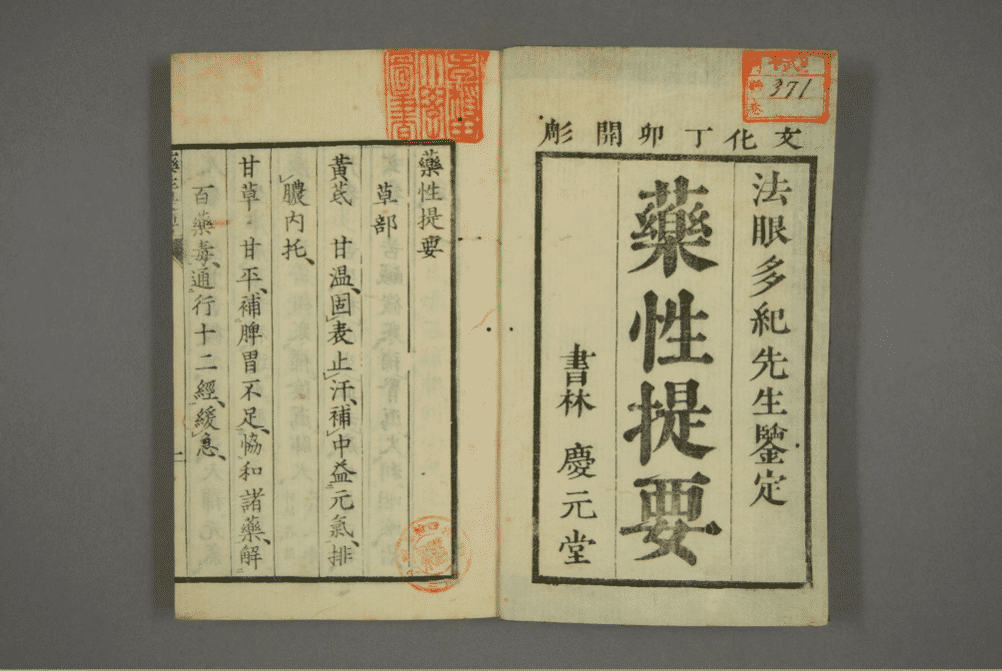 文化丁卯開彫
法眼多紀先生鑒定
藥性提要
書林 慶元堂
371
藥性提要
草部
黃芪 甘溫固表止汗補中益元氣排
膿內托
甘草 甘平補脾胃不足恊和諸藥解
百藥毒通行十二經緩急